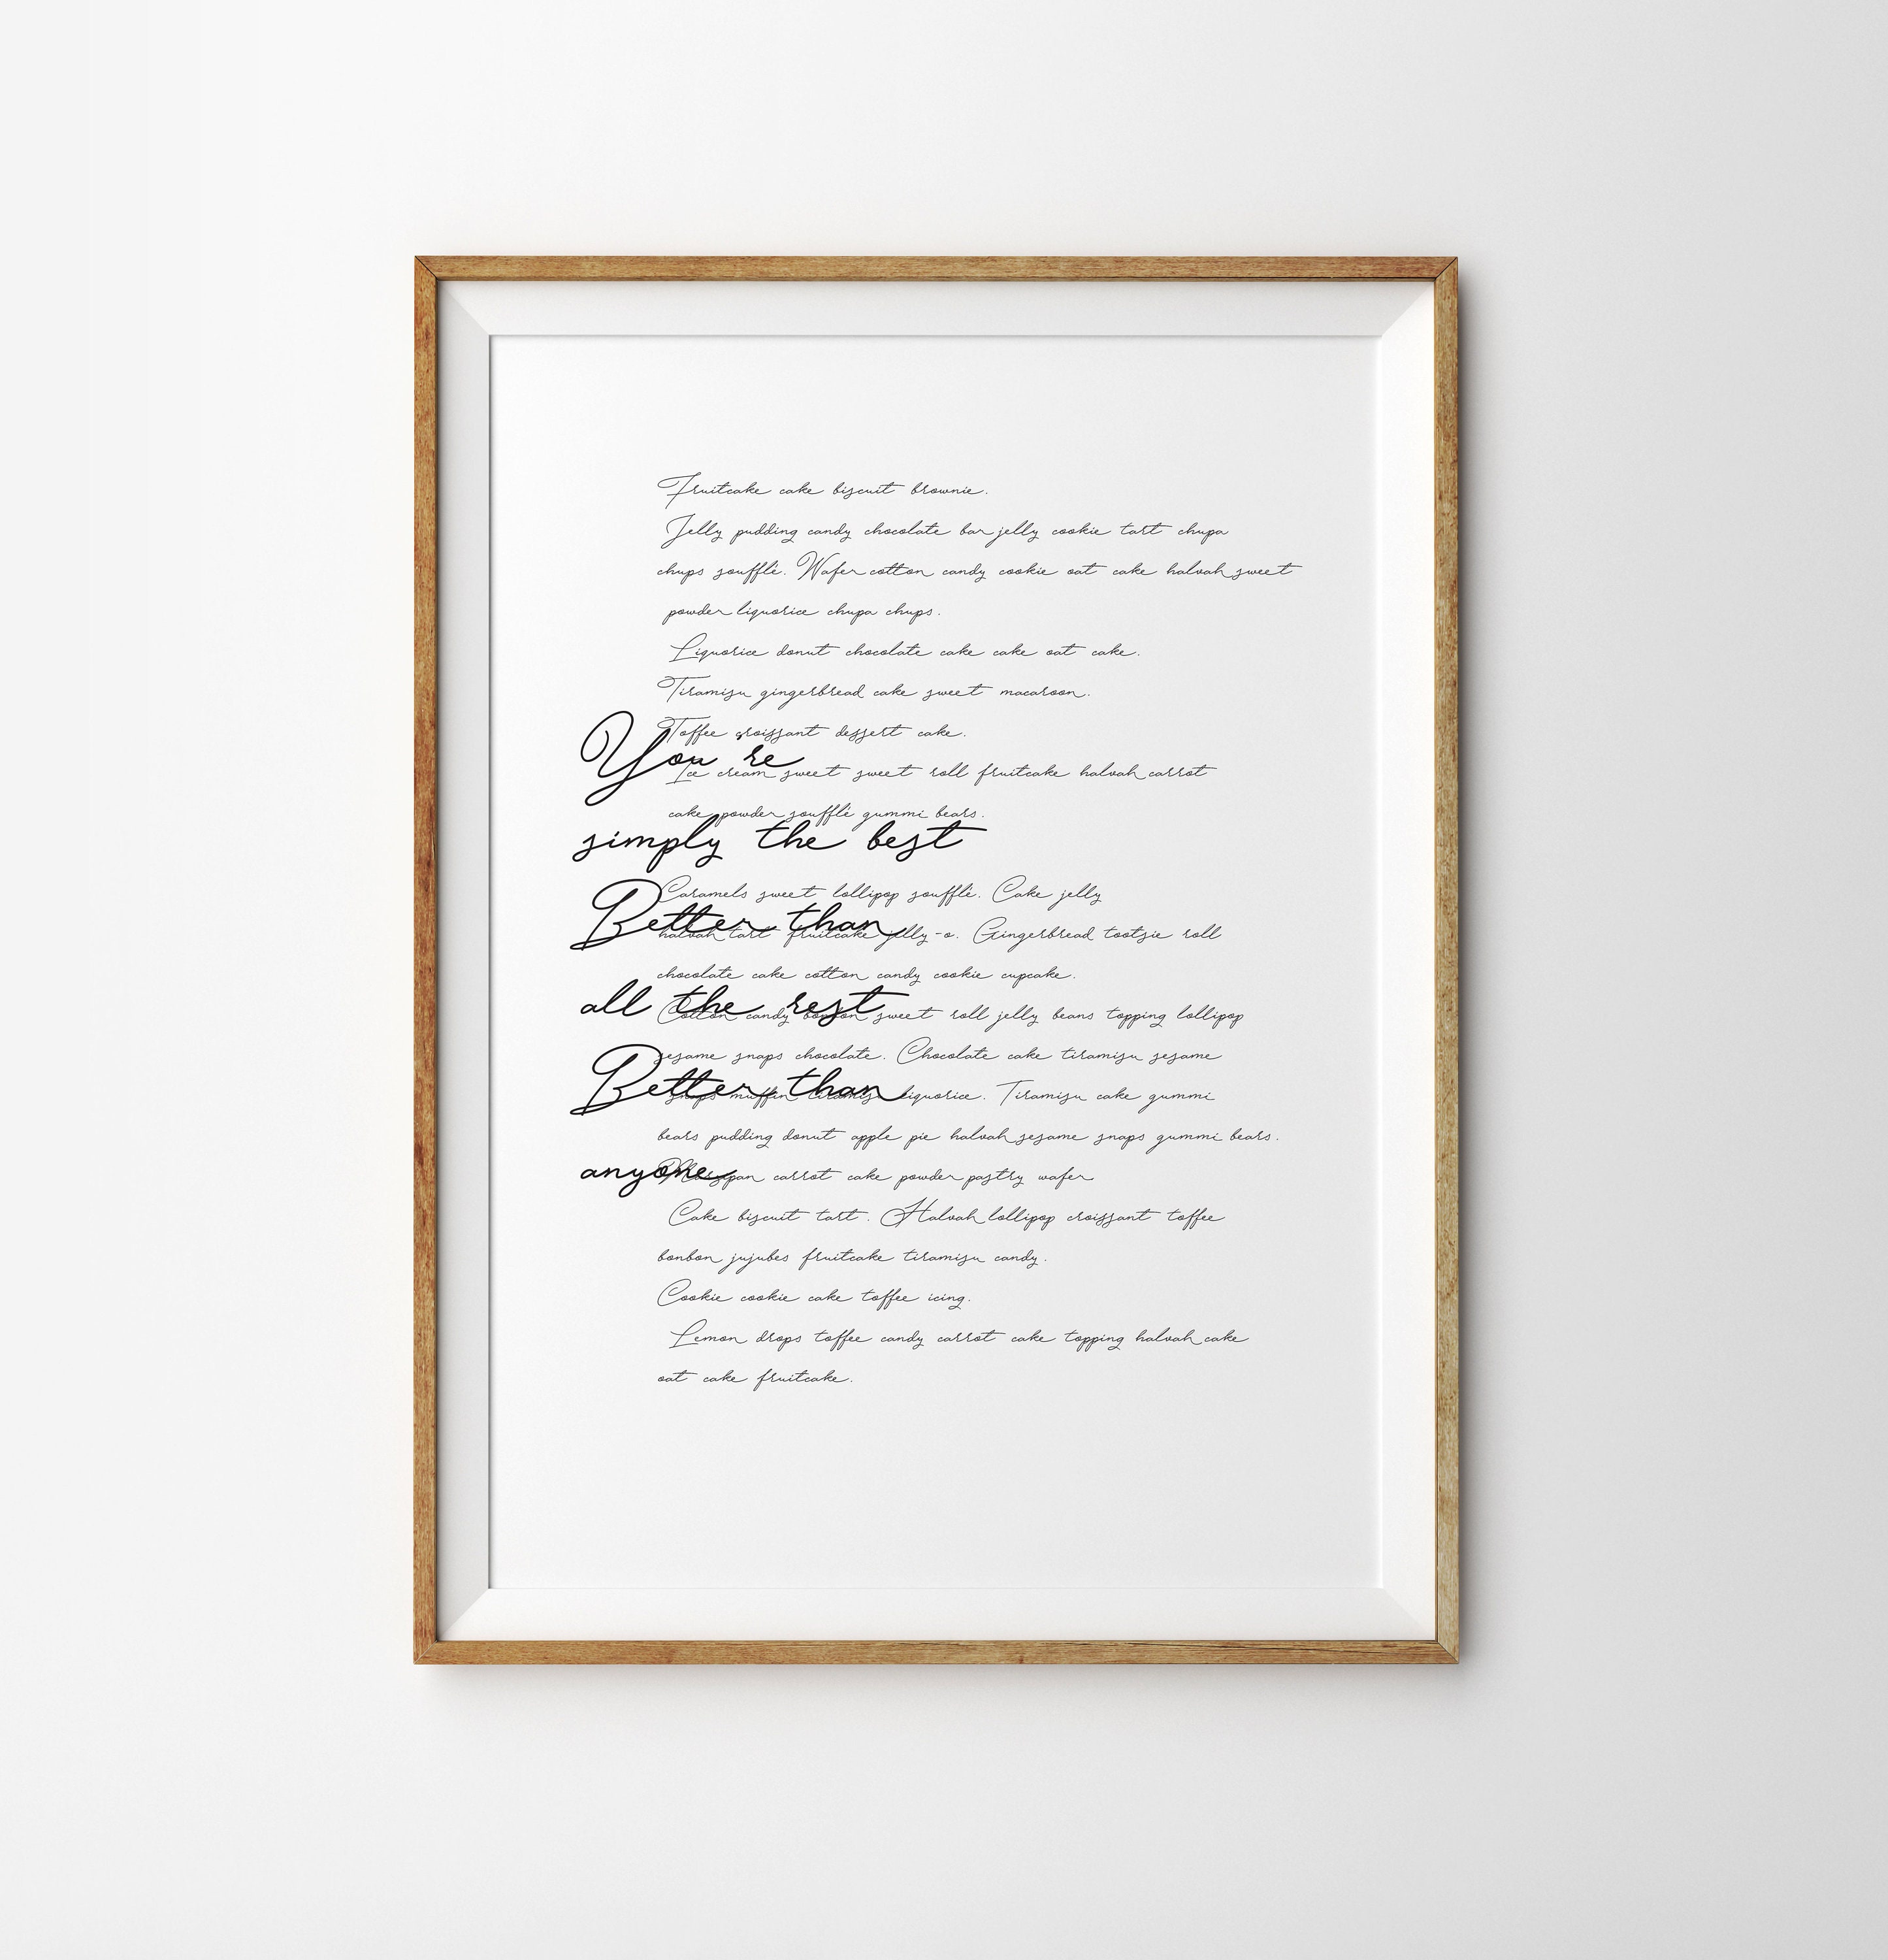 Fruitcake cake biscuit brownie.
Jelly pudding candy chocolate bar jelly cookie tart chupa
chups soufflé. Wafer cotton candy cookie oat cake halvah sweet
powder liquorice chupa chups.
Liquorice donut chocolate cake cake oat cake.
Tiramisu gingerbread cake sweet macaroon.
Toffee croissant dessert cake.
You re
Ice cream sweet sweet roll fruitcake halvah carrot
cake powder soufflé gummi bears.
simply the best
Caramels sweet lollipop soufflé. Cake jelly
Better than
halvah tart fruitcake jelly-o. Gingerbread tootsie roll
chocolate cake cotton candy cookie cupcake.
all the rest
Cotton candy bonbon sweet roll jelly beans topping lollipop
sesame snaps chocolate. Chocolate cake tiramisu sesame
Better than
snaps muffin tiramisu liquorice. Tiramisu cake gummi
bears pudding donut apple pie halvah sesame snaps gummi bears.
anyone
Marzipan carrot cake powder pastry wafer
Cake biscuit tart. Halvah lollipop croissant toffee
bonbon jujubes fruitcake tiramisu candy.
Cookie cookie cake toffee icing.
Lemon drops toffee candy carrot cake topping halvah cake
oat cake fruitcake.